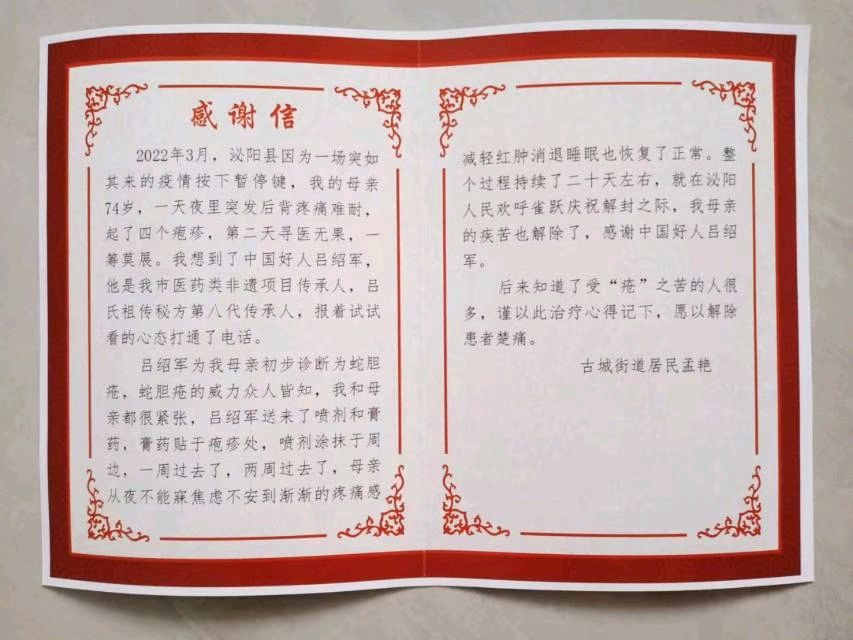 感谢信
2022年3月，泌阳县因为一场突如
其来的疫情按下暂停键，我的母亲
74岁，一天夜里突发后背疼痛难耐，
起了四个疱疹，第二天寻医无果，一
筹莫展。我想到了中国好人吕绍军，
他是我市医药类非遗项目传承人，吕
氏祖传秘方第八代传承人，报着试试
看的心态打通了电话。
吕绍军为我母亲初步诊断为蛇胆
疮，蛇胆疮的威力众人皆知，我和母
亲都很紧张，吕绍军送来了喷剂和膏
药，膏药贴于疱疹处，喷剂涂抹于周
边，一周过去了，两周过去了，母亲
从夜不能寐焦虑不安到渐渐的疼痛感
减轻红肿消退睡眠也恢复了正常。整
个过程持续了二十天左右，就在泌阳
人民欢呼雀跃庆祝解封之际，我母亲
的疾苦也解除了，感谢中国好人吕绍
军。
后来知道了受“疮”之苦的人很
多，谨以此治疗心得记下，愿以解除
患者楚痛。
古城街道居民孟艳